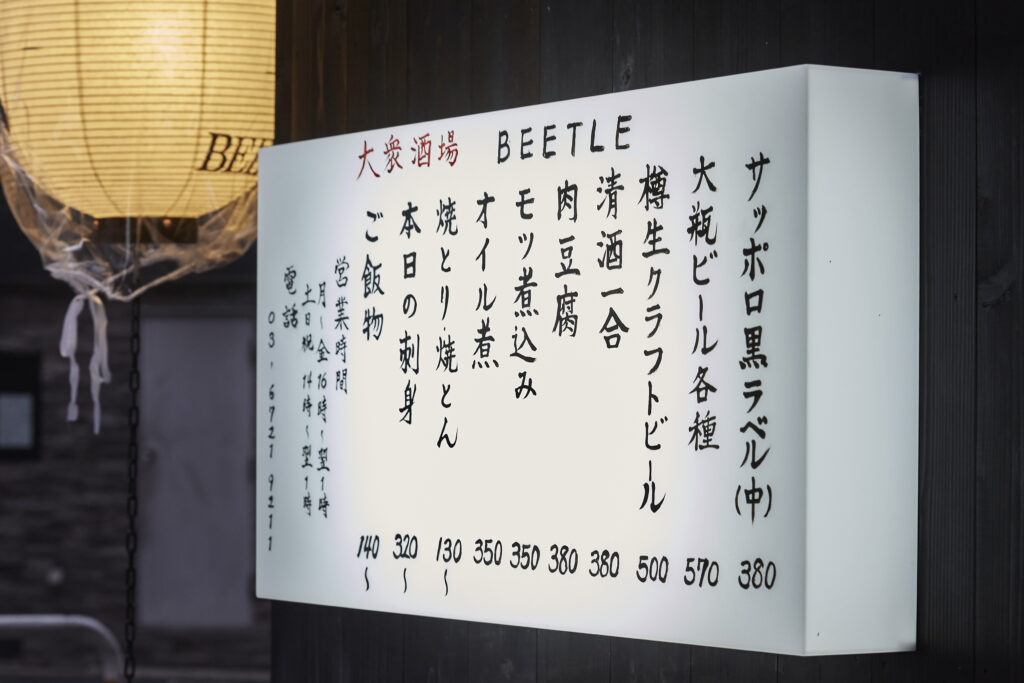 大衆酒場 BEETLE
サッポロ黒ラベル(中) 380
大瓶ビール各種 570
樽生クラフトビール 500
清酒一合 380
肉豆腐 380
モツ煮込み 350
オイル煮 350
焼とり・焼とん 130~
本日の刺身 320~
ご飯物 140~
営業時間
月~金 16時~翌1時
土日祝 14時~翌1時
電話
03.6721 9211
BEE